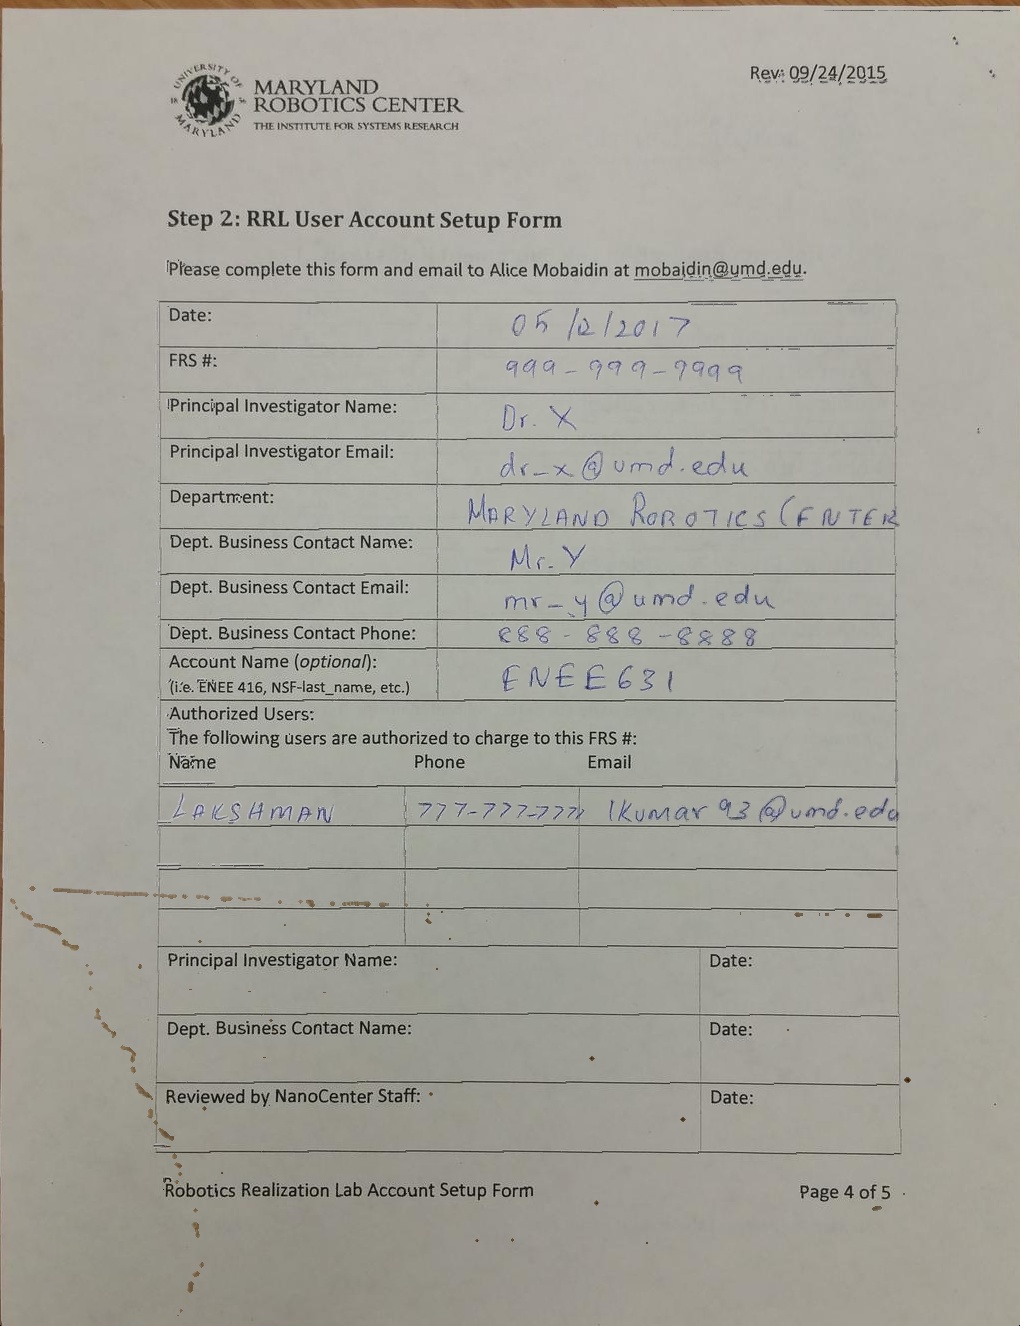 UNIVERSITY OF
18 56
MARYLAND
MARYLAND
ROBOTICS CENTER
THE INSTITUTE FOR SYSTEMS RESEARCH
Rev: 09/24/2015
Step 2: RRL User Account Setup Form
Please complete this form and email to Alice Mobaidin at mobaidin@umd.edu.
Date: 05/12/2017
FRS #: 999-999-9999
Principal Investigator Name: Dr. X
Principal Investigator Email: dr_x@umd.edu
Department: MARYLAND ROBOTICS CENTER
Dept. Business Contact Name: Mr. Y
Dept. Business Contact Email: mr_y@umd.edu
Dept. Business Contact Phone: 888-888-8888
Account Name (optional): ENEE631
(i.e. ENEE 416, NSF-last_name, etc.)
Authorized Users:
The following users are authorized to charge to this FRS #:
Name Phone Email
LAKSHMAN 777-777-777 lkumar93@umd.edu
Principal Investigator Name: Date:
Dept. Business Contact Name: Date:
Reviewed by NanoCenter Staff: Date:
Robotics Realization Lab Account Setup Form Page 4 of 5